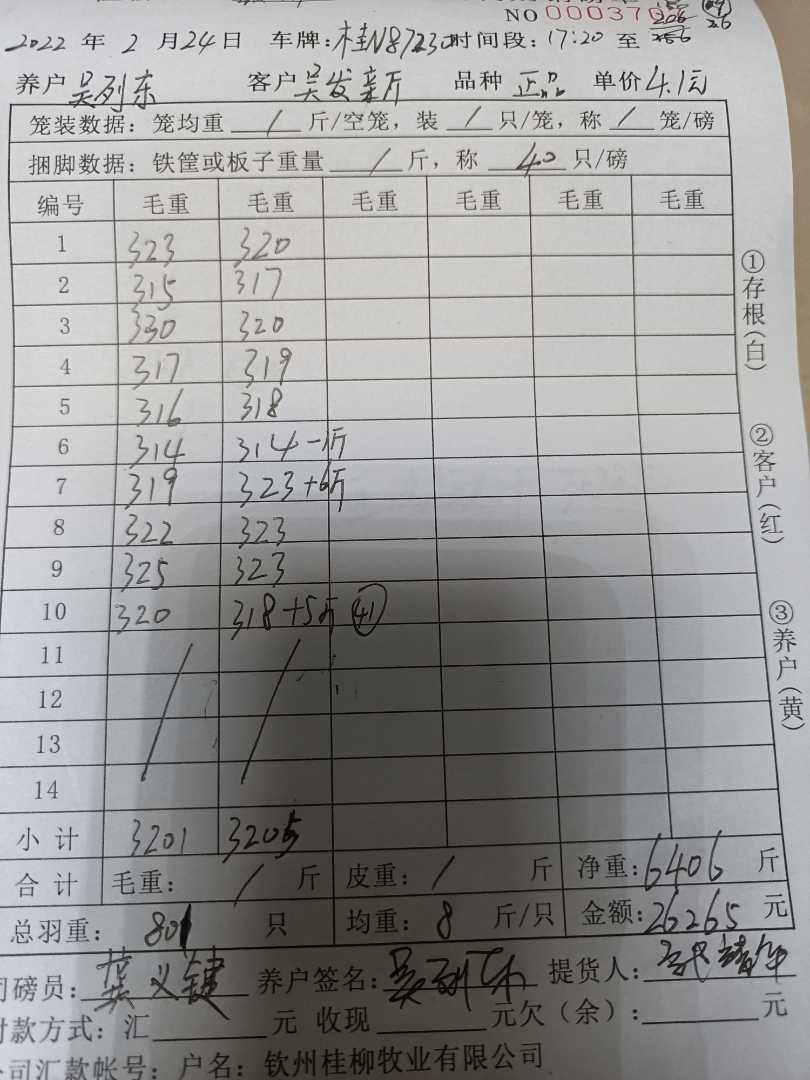 NO 000370
26
2022 年 2 月 24 日 车牌: 桂N87230 时间段: 17:20 至
养户 吴列东 客户 吴发新 品种 正品 单价 4.1元
笼装数据: 笼均重 / 斤/空笼, 装 / 只/笼, 称 / 笼/磅
捆脚数据: 铁筐或板子重量 / 斤, 称 40 只/磅
编号 毛重 毛重 毛重 毛重 毛重 毛重
1 323 320
2 315 317
3 330 320
4 317 319
5 316 318
6 314 314-1斤
7 319 323+6斤
8 322 323
9 325 323
10 320 318+5斤 41
11
12
13
14
小计 3201 3205
合计 毛重: / 斤 皮重: / 斤 净重: 6406 斤
总羽重: 801 只 均重: 8 斤/只 金额: 26265 元
司磅员: 龚义键 养户签名: 吴列东 提货人:
付款方式: 汇 元 收现 元欠(余): 元
公司汇款帐号: 户名: 钦州桂柳牧业有限公司
①存根(白)
②客户(红)
③养户(黄)